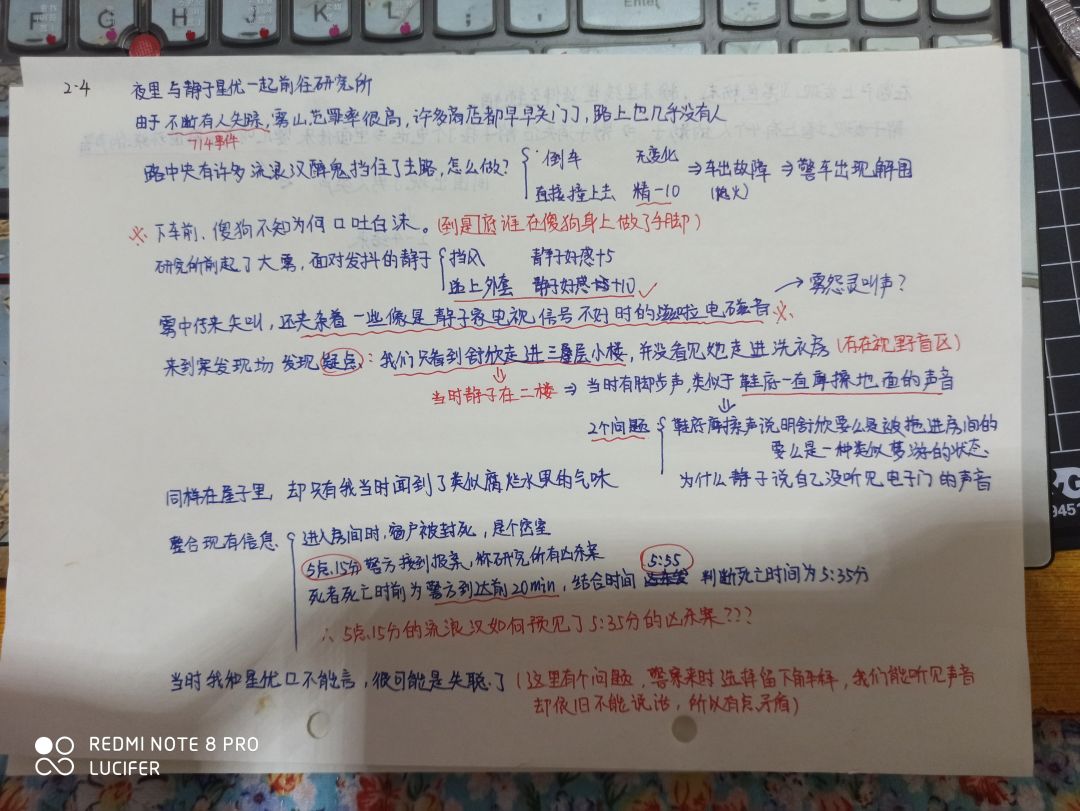 F G H J K L ; : Enter
2·4 夜里与静子星优一起前往研究所
由于不断有人失踪,雾山犯罪率很高,许多商店都早早关门了,路上也几乎没有人
714事件
路中央有许多流浪汉醉鬼挡住了去路,怎么做? 倒车 无变化 ⇒车出故障 ⇒警车出现解围
直接撞上去 精-10 (熄火)
※ 下车前、傻狗不知为何口吐白沫。(到是底谁在傻狗身上做了手脚)
研究所前起了大雾,面对发抖的静子 挡风 静子好感+5
送上外套 静子好感+10 ✓
→雾怨灵叫声?
雾中传来尖叫,还夹杂着一些像是静子家电视信号不好时的滋啦电磁音 ※
来到案发现场 发现疑点:我们只看到舒欣走进三层小楼,并没看见她走进洗衣房(存在视野盲区)
当时静子在二楼 ⇒ 当时有脚步声,类似于鞋底一直摩擦地面的声音
2个问题 鞋底摩擦声说明舒欣要么是被拖进房间的
要么是一种类似梦游的状态
为什么静子说自己没听见电子门的声音
同样在屋子里,却只有我当时闻到了类似腐烂水果的气味
整合现有信息 进入房间时,窗户被封死,是个密室
5点15分警方接到报案,称研究所有凶杀案
5:55
死者死亡时前为警方到达前20min,结合时间 判断死亡时间为5:35分
∴5点15分的流浪汉如何预见了5:35分的凶杀案???
当时我和星优口不能言,很可能是失聪了(这里有个问题,警察来时选择留下解释,我们能听见声音
却依旧不能说话,所以有点矛盾)
9451
REDMI NOTE 8 PRO
LUCIFER